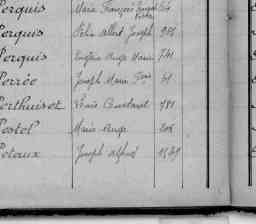 Perquis Marie François
Perquis Félix Albert Joseph 981
Perquis Eugène Ange Marie 741
Perrée Joseph Marie Fois 41
Perthuisot Louis Gustave 781
Postel Marie Ange 208
Potaux Joseph Alfred